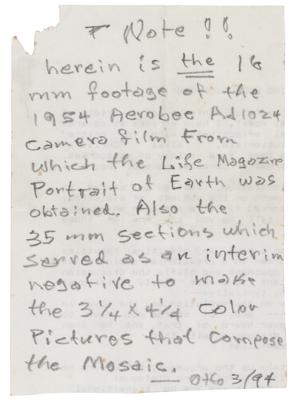 Note!!
herein is the 16
mm footage of the
1954 Aerobee
camera film from
which the Life Magazine
Portrait of Earth was
obtained. Also the
35 mm sections which
served as an interim
negative to make
the 3 1/4 x 4 1/4 color
Pictures that compose
the Mosaic.
Otto 3/94